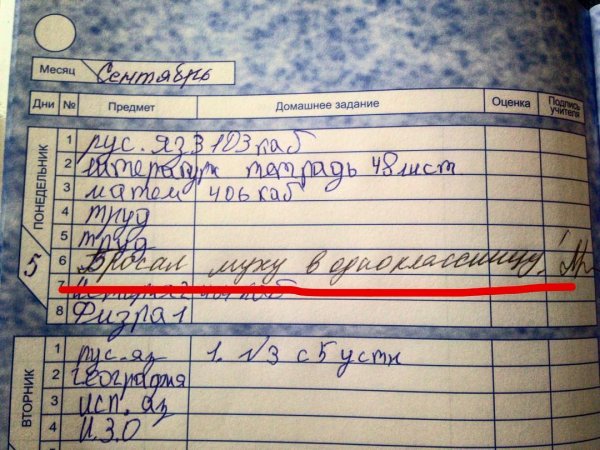 Месяц Сентябрь
Дни № Предмет Домашнее задание Оценка Подпись учителя
ПОНЕДЕЛЬНИК
5
1 рус. яз 103 каб
2 литература тетрадь 48 лист
3 матем 406 каб
4 труд
5 труд
6 Бросал муху в одноклассницу!
7 каб
8 Физра 1
ВТОРНИК
1 рус. яз 1. √3 с 5 устн
2 география
3 исп. яз
4 И.З.О